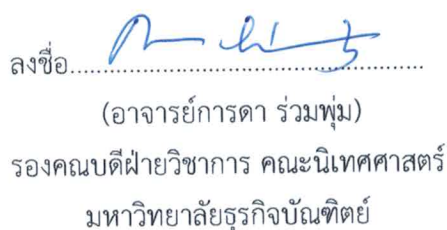 ลงชื่อ........................................................
(อาจารย์การดา ร่วมพุ่ม)
รองคณบดีฝ่ายวิชาการ คณะนิเทศศาสตร์
มหาวิทยาลัยธุรกิจบัณฑิตย์